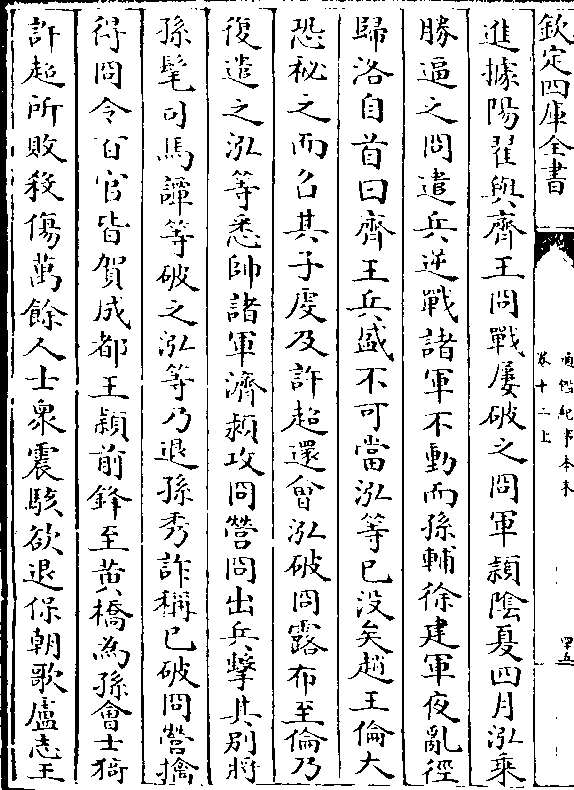 欽定四庫全書
通鑑紀事本末
卷十二上
四五
進據陽翟與齊王冏戰屢破之冏軍潁陰夏四月泓乘
勝逼之冏遣兵逆戰諸軍不動而孫輔徐建軍夜亂徑
歸洛自首曰齊王兵盛不可當泓等已没矣趙王倫大
恐秘之而召其子虔及許超還會泓破冏露布至倫乃
復遣之泓等悉帥諸軍濟潁攻冏營冏出兵擊其别將
孫髦司馬譚等破之泓等乃退孫秀詐稱已破冏營擒
得冏令百官皆賀成都王穎前鋒至黄橋為孫會士猗
許超所敗殺傷萬餘人士衆震駭欲退保朝歌盧志王